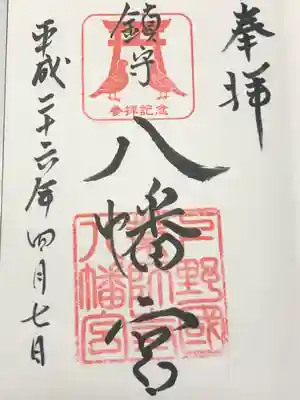 奉拝
鎮守
参拝記念
八幡宮
上野國
八幡宮
平成二十六年四月七日